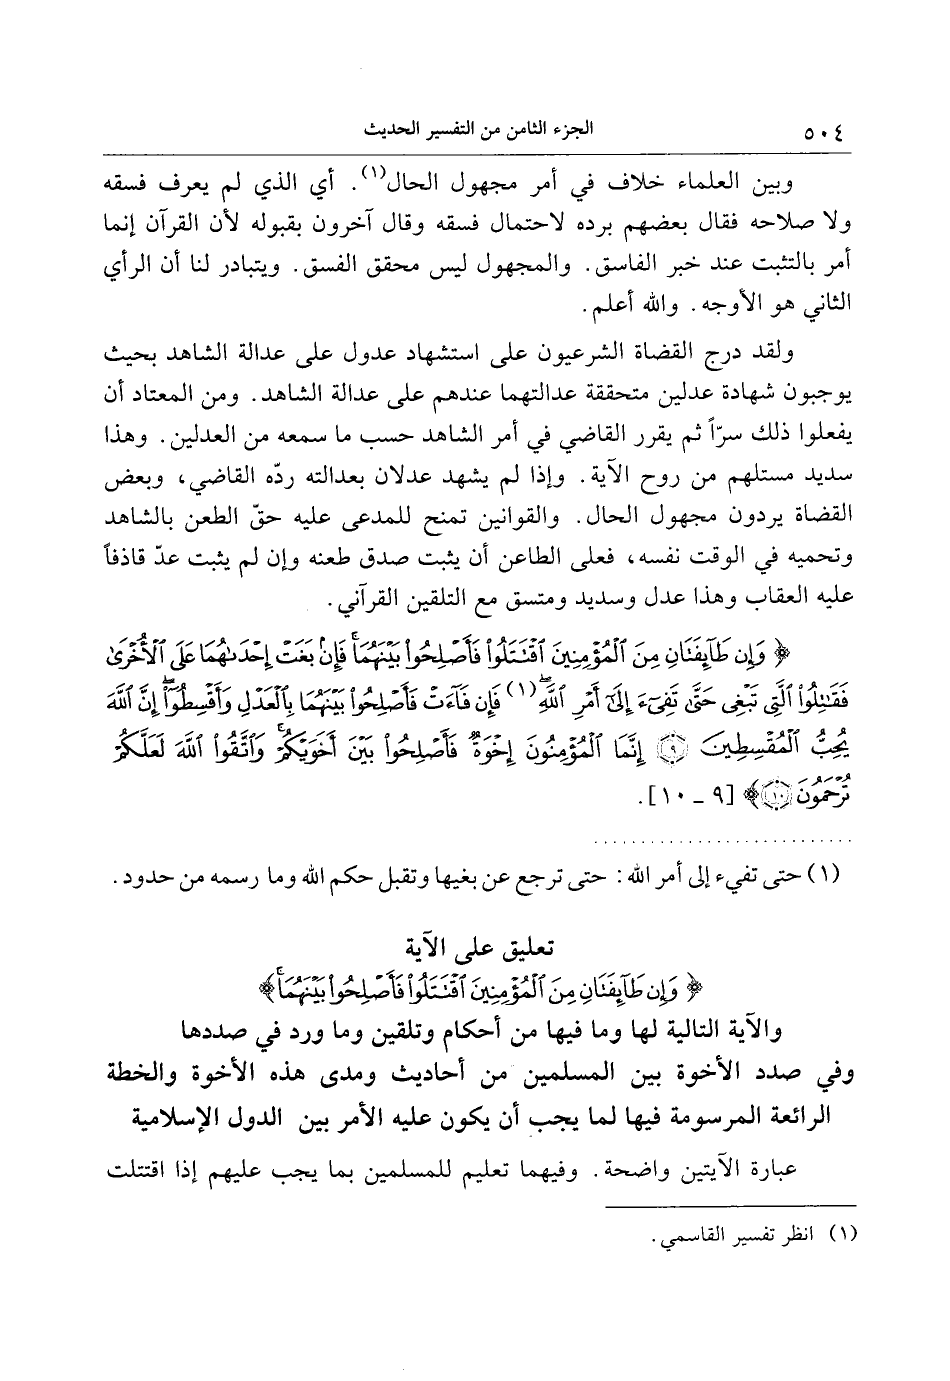 ٥٠٤ الجزء الثامن من التفسير الحديث
وبين العلماء خلاف في أمر مجهول الحال(١). أي الذي لم يعرف فسقه
ولا صلاحه فقال بعضهم برده لاحتمال فسقه وقال آخرون بقبوله لأن القرآن إنما
أمر بالتثبت عند خبر الفاسق. والمجهول ليس محقق الفسق. ويتبادر لنا أن الرأي
الثاني هو الأوجه. والله أعلم.
ولقد درج القضاة الشرعيون على استشهاد عدول على عدالة الشاهد بحيث
يوجبون شهادة عدلين متحققة عدالتهما عندهم على عدالة الشاهد. ومن المعتاد أن
يفعلوا ذلك سرّاً ثم يقرر القاضي في أمر الشاهد حسب ما سمعه من العدلين. وهذا
سديد مستلهم من روح الآية. وإذا لم يشهد عدلان بعدالته ردّه القاضي، وبعض
القضاة يردون مجهول الحال. والقوانين تمنح للمدعى عليه حقّ الطعن بالشاهد
وتحميه في الوقت نفسه، فعلى الطاعن أن يثبت صدق طعنه وإن لم يثبت عدّ قاذفاً
عليه العقاب وهذا عدل وسديد ومتسق مع التلقين القرآني.
﴿ وَإِن طَآئِفَتَانِ مِنَ ٱلْمُؤْمِنِينَ ٱقْتَتَلُوا۟ فَأَصْلِحُوا۟ بَيْنَهُمَا ۖ فَإِنۢ بَغَتْ إِحْدَىٰهُمَا عَلَى ٱلْأُخْرَىٰ
فَقَـٰتِلُوا۟ ٱلَّتِى تَبْغِى حَتَّىٰ تَفِىٓءَ إِلَىٰٓ أَمْرِ ٱللَّهِ ۚ(١) فَإِن فَآءَتْ فَأَصْلِحُوا۟ بَيْنَهُمَا بِٱلْعَدْلِ وَأَقْسِطُوٓا۟ ۖ إِنَّ ٱللَّهَ
يُحِبُّ ٱلْمُقْسِطِينَ ۝٩ إِنَّمَا ٱلْمُؤْمِنُونَ إِخْوَةٌ فَأَصْلِحُوا۟ بَيْنَ أَخَوَيْكُمْ ۚ وَٱتَّقُوا۟ ٱللَّهَ لَعَلَّكُمْ
تُرْحَمُونَ ۝١٠﴾ [٩ - ١٠].
(١) حتى تفيء إلى أمر الله: حتى ترجع عن بغيها وتقبل حكم الله وما رسمه من حدود.
تعليق على الآية
﴿ وَإِن طَآئِفَتَانِ مِنَ ٱلْمُؤْمِنِينَ ٱقْتَتَلُوا۟ فَأَصْلِحُوا۟ بَيْنَهُمَا ۖ﴾
والآية التالية لها وما فيها من أحكام وتلقين وما ورد في صددها
وفي صدد الأخوة بين المسلمين من أحاديث ومدى هذه الأخوة والخطة
الرائعة المرسومة فيها لما يجب أن يكون عليه الأمر بين الدول الإسلامية
عبارة الآيتين واضحة. وفيهما تعليم للمسلمين بما يجب عليهم إذا اقتتلت
(١) انظر تفسير القاسمي.